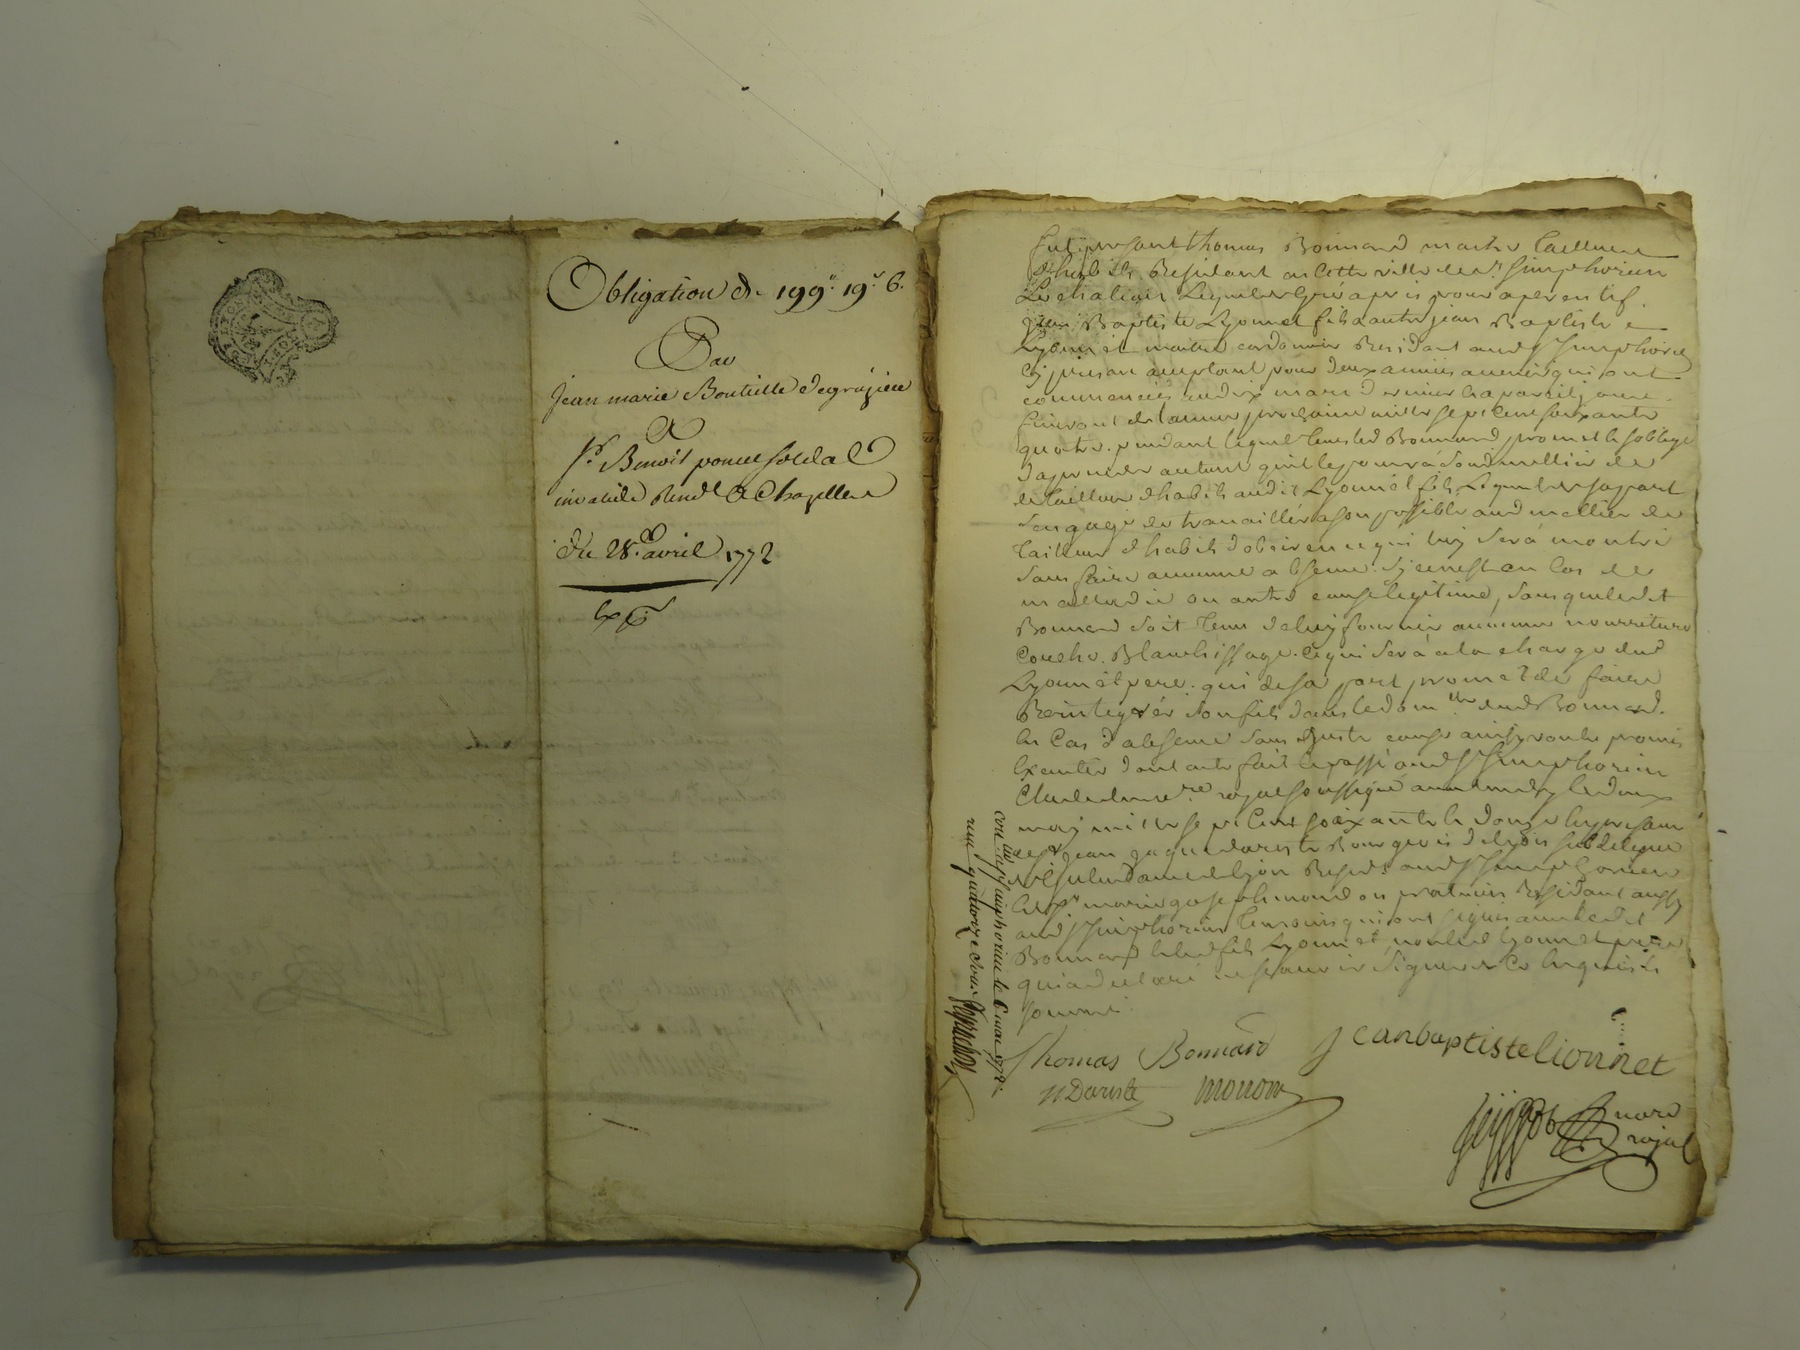 Obligation de 199ᵘ 19ˢ 6.
Par
jean marie Bouteille degrézieu
A
Sʳ Benoit poncet soldat
invalide Residt A Chazelles
du 28. avril 1772
Exp
fut present thomas Bonnard maitre tailleur
dhabits Residant en cette ville de st simphorien
Lechatieau Lequel de gré a pris pour aprentif
jean Baptiste Lyonnet fils a autre jean Baptiste
Lyonnet maitre cordonnier Residant aud st simphorien
Cy present acceptant pour deux années avenir qui ont
commencées au dix mars dernier a pareil jour
finiront de lannée prochaine mille sept cent soixante
quatre. pendant lequel tems led Bonnard promet et soblige
daprendre autant quil le pourrá soudmettier de
de tailleur dhabits audit Lyonnet fils, Lequel de sa part
sengage de travaillér a son possible aud mettier de
tailleur dhabits dobeir en ce qui luy serà montré
sans faire aucunne absence. sy ce nest en Cas de
malladie ou autre cause legitime, sans que ledit
Bonnard soit tenu de luy fournir aucunne nourriture
Couche. Blanchissage. Ce qui serà a la charge dud
Lyonnèt pere. qui de sa part promet de faire
Reintegrér son fils dans le domlle dud Bonnard.
En Cas dabsence sans juste cause ainsy voulu promis
Executer dont acte fait et passé aud st simphorien
Etude du nre royal soussigné avant midy le doux
may mille sept cent soixante le douze En presence
de sr jean jaque dariste Bourgeois de lyon subdelegué
de lintendance de lyon Residt aud st simphorien
Et sr marie joseph mondon praticien Residant aussy
aud st simphorien temoins qui ont signés avec ledit
Bonnard et led fils Lyonnet, non led Lyonnet pere
qui a declaré ne scavoir signer de Ce Enquis et
sommé.
Thomas Bonnard
jeanbaptiste lionnet
Dariste
monon
nore
royal
conlé a st simphorien le 6 mai 1772
recu quatorze sous